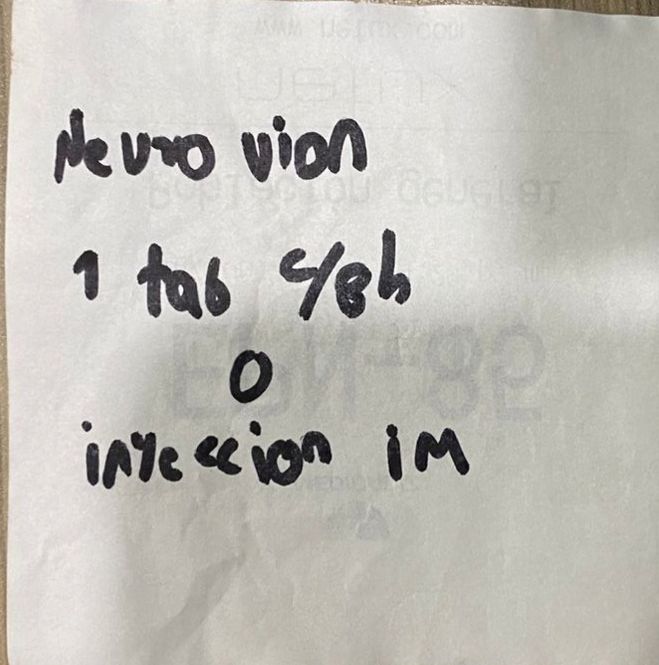 Neuro vion
1 tab c/8h
O
inyeccion iM